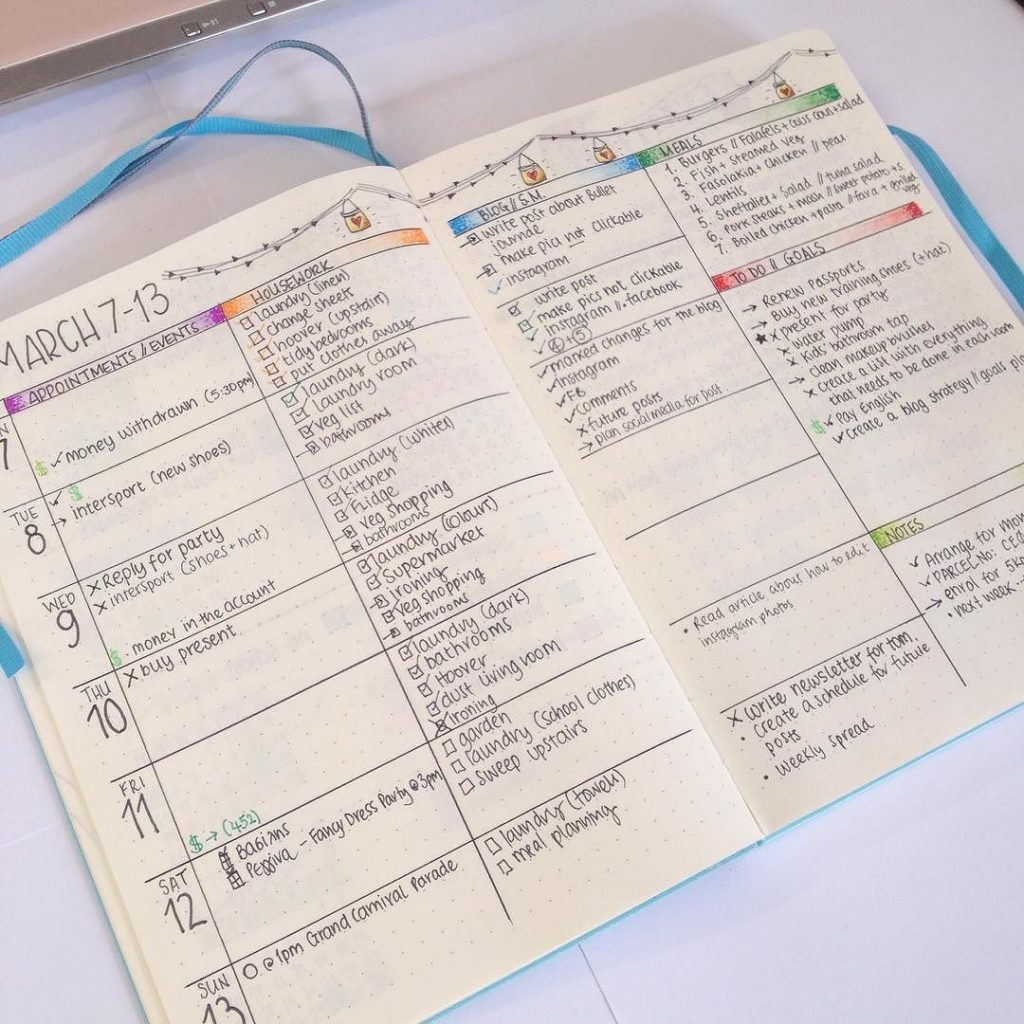 MARCH 7-13
APPOINTMENTS // EVENTS
7
$ ✓ money withdrawn (5:30pm)
TUE
8
✓ $
→ intersport (new shoes)
WED
9
X Reply for party
X intersport (shoes + hat)
$ . money in the account
THU
10
X buy present
FRI
11
$ → (452)
SAT
12
Βασίλης
Ρεββίνα - Fancy Dress Party @ 3pm
SUN
13
@ 1pm Grand Carnival Parade
HOUSEWORK
laundry (linen)
change sheets
hoover (upstairs)
tidy bedrooms
put clothes away
laundry (dark)
laundry room
veg list
bathrooms
laundry (whites)
Kitchen
Fridge
veg shopping
bathrooms
laundry (colour)
supermarket
Ironing
veg shopping
bathrooms
laundry (dark)
bathrooms
Hoover
dust living room
ironing
garden
laundry (school clothes)
sweep upstairs
laundry (towels)
meal planning
BLOG // S.M.
write post about Bullet
journal
make pics not clickable
✓ instagram
write post
make pics not clickable
✓ instagram // facebook
✓ ④ + ⑤
✓ marked changes for the blog
✓ instagram
✓ FB
✓ comments
X future posts
→ plan social media for post
• Read article about how to edit
instagram photos
X write newsletter for tom,
• create a schedule for future
posts
• weekly spread
MEALS
1. Burgers // Falafels + cous cous + salad
2. Fish + steamed veg
3. Fasolakia + chicken // peas
4. Lentils
5. Sheftalies + salad // tuna salad
6. Pork steaks + mash // sweet potato + s. veg
7. Boiled chicken + pasta // fava + grilled veg
TO DO // GOALS
→ Renew passports
→ Buy new training shoes (+hat)
★ X present for party
X water pump
X Kids' bathroom tap
→ clean makeup brushes
X Create a list with everything
that needs to be done in each room
$ ✓ Pay English
✓ Create a blog strategy // goals
NOTES
✓ Arrange for
✓ PARCEL No:
→ enrol for 5k
• next week...